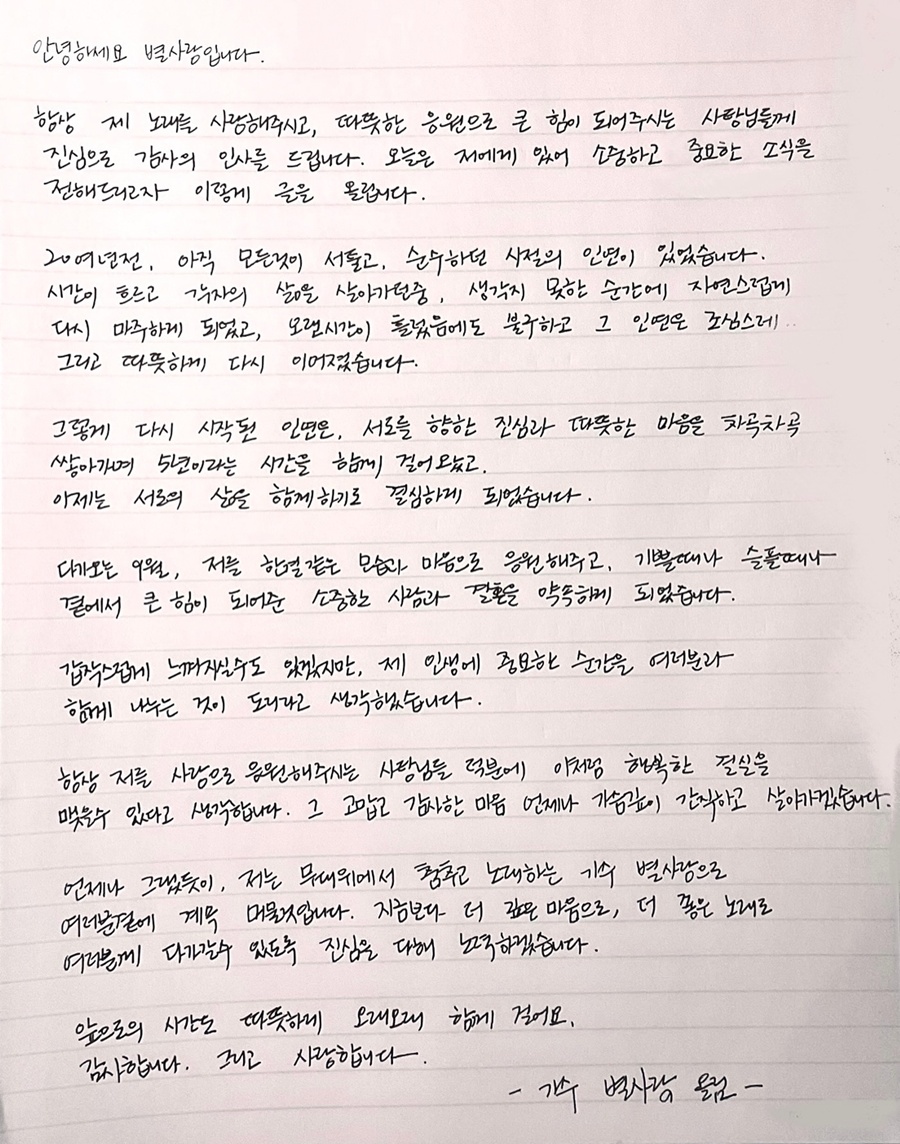 안녕하세요 별사랑입니다.
항상 제 노래를 사랑해주시고, 따뜻한 응원으로 큰 힘이 되어주시는 사랑님들께
진심으로 감사의 인사를 드립니다. 오늘은 저에게 있어 소중하고 중요한 소식을
전해드리고자 이렇게 글을 올립니다.
20여년전, 아직 모든것이 서툴고, 순수하던 시절의 인연이 있었습니다.
시간이 흐르고 각자의 삶을 살아가던중, 생각지 못한 순간에 자연스럽게
다시 마주하게 되었고, 오랜시간이 흘렀음에도 불구하고 그 인연은 조심스레..
그리고 따뜻하게 다시 이어졌습니다.
그렇게 다시 시작된 인연은, 서로를 향한 진심과 따뜻한 마음을 차곡차곡
쌓아가며 5년이라는 시간을 함께 걸어왔고.
이제는 서로의 삶을 함께하기로 결심하게 되었습니다.
다가오는 9월, 저를 한결같은 모습과 마음으로 응원해주고, 기쁠때나 슬플때나
곁에서 큰 힘이 되어준 소중한 사람과 결혼을 약속하게 되었습니다.
갑작스럽게 느껴지실수도 있겠지만, 제 인생에 중요한 순간을 여러분과
함께 나누는 것이 도리라고 생각했습니다.
항상 저를 사랑으로 응원해주시는 사랑님들 덕분에 이처럼 행복한 결실을
맺을수 있다고 생각합니다. 그 고맙고 감사한 마음 언제나 가슴깊이 간직하고 살아가겠습니다.
언제나 그랬듯이, 저는 무대위에서 춤추고 노래하는 가수 별사랑으로
여러분곁에 계속 머물것입니다. 지금보다 더 깊은 마음으로, 더 좋은 노래로
여러분께 다가갈수 있도록 진심을 다해 노력하겠습니다.
앞으로의 시간도 따뜻하게 오래오래 함께 걸어요.
감사합니다. 그리고 사랑합니다.
- 가수 별사랑 올림 -